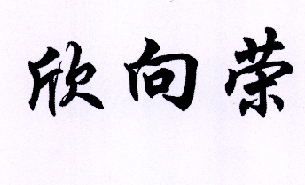 欣向荣